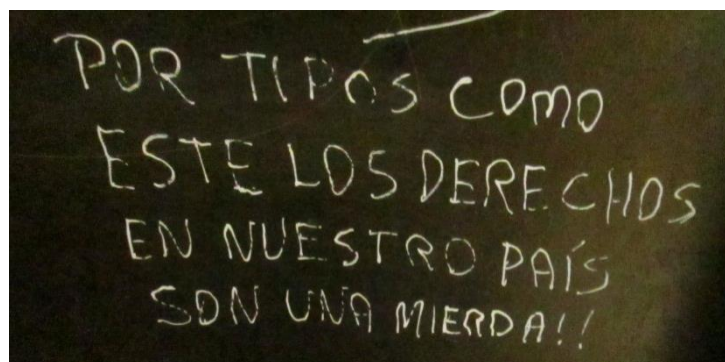 POR TIPOS COMO
ESTE LOS DERECHOS
EN NUESTRO PAÍS
SON UNA MIERDA!!